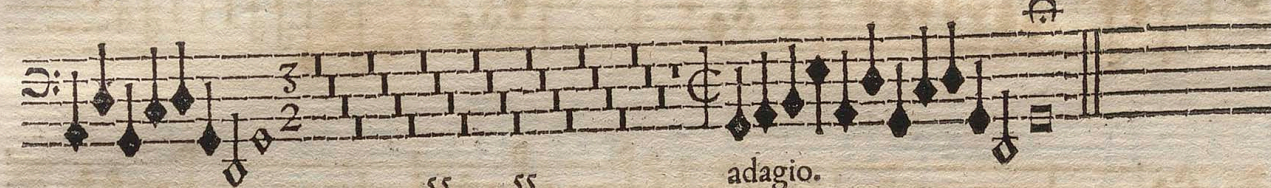 3
2
adagio.